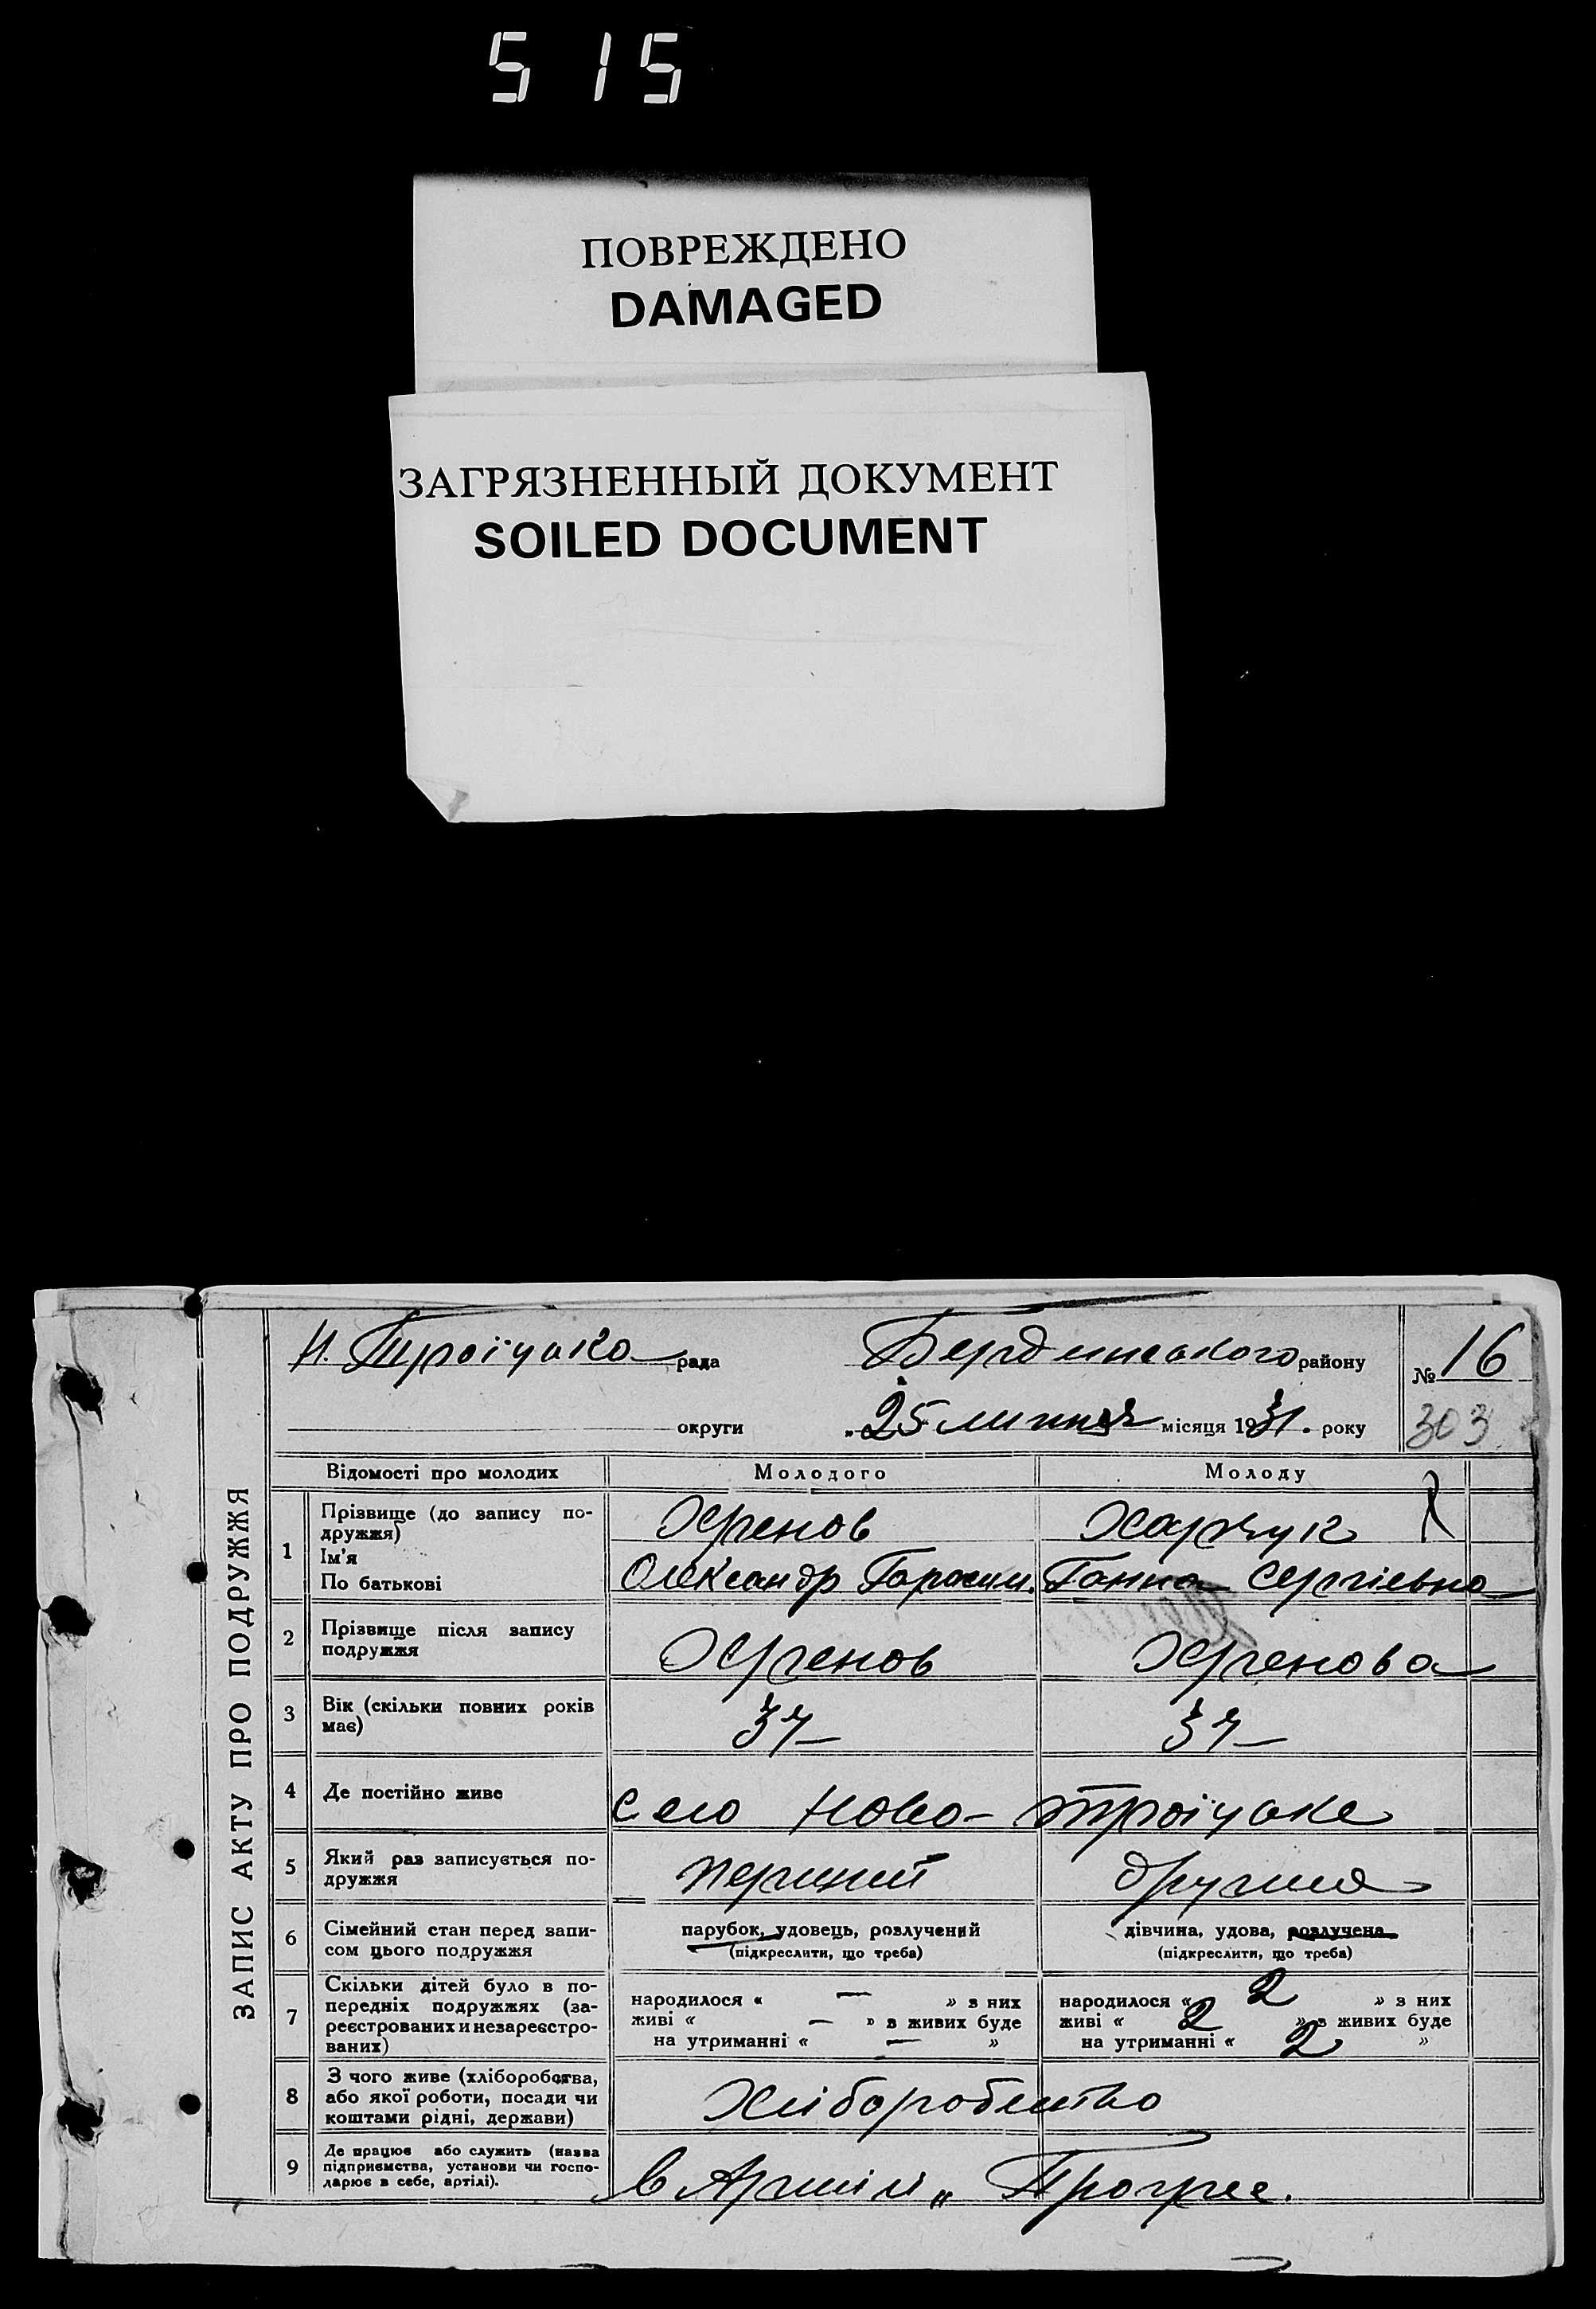 515
ПОВРЕЖДЕНО
DAMAGED
ЗАГРЯЗНЕННЫЙ ДОКУМЕНТ
SOILED DOCUMENT
ЗАПИС АКТУ ПРО ПОДРУЖЖЯ
Н. Троїцька рада Бердянського району № 16
округи „25 липня місяця 1931. року 303
Відомості про молодих Молодого Молоду
1 Прізвище (до запису по-
дружжя) Хренов Харчук
Ім'я
По батькові Олександр Гарасим. Ганна Сергієвна
2 Прізвище після запису
подружжя Хренов Хренова
3 Вік (скільки повних років
має) 37 37
4 Де постійно живе село Ново-троїцьке
5 Який раз записується по-
дружжя перший друга
6 Сімейний стан перед запи-
сом цього подружжя
парубок, удовець, розлучений
(підкреслити, що треба)
дівчина, удова, розлучена
(підкреслити, що треба)
7 Скільки дітей було в по-
передніх подружжях (за-
реєстрованих и незареєстро-
ваних)
народилося « — » з них
живі « — » з живих буде
на утриманні « — »
народилося « 2 » з них
живі « 2 » з живих буде
на утриманні « 2 »
8 З чого живе (хліборобства,
або якої роботи, посади чи
коштами рідні, держави) Хліборобство
9 Де працює або служить (назва
підприємства, установи чи госпо-
дарює в себе, артілі). в Артілі „Прогрес.